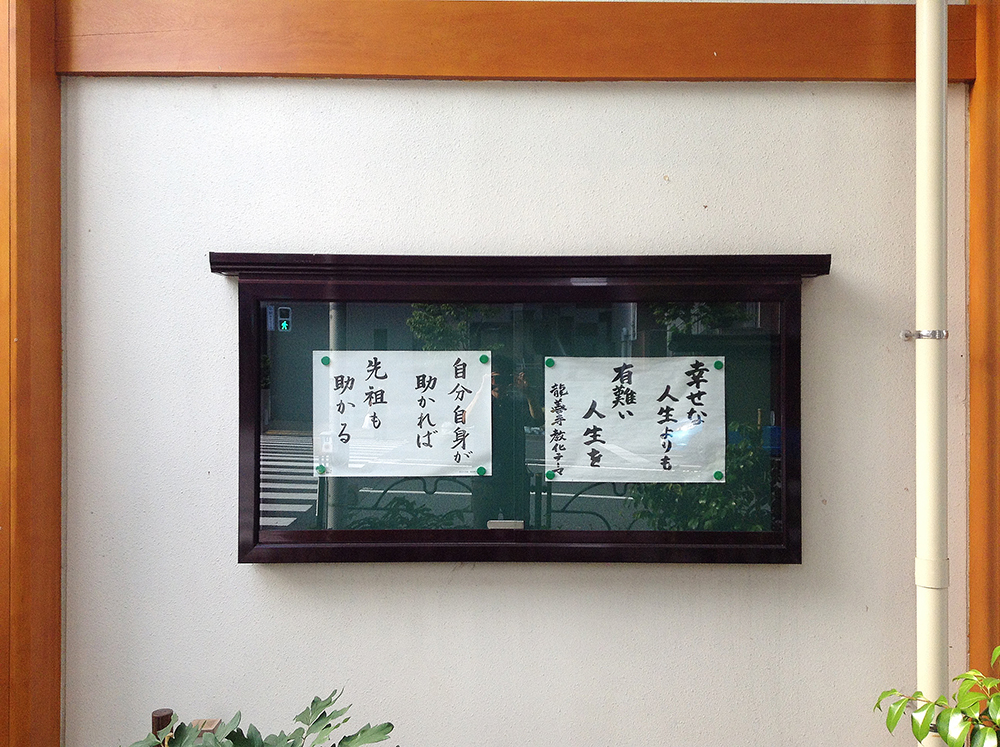 幸せな
人生よりも
有難い
人生を
龍善寺教化テーマ
自分自身が
助かれば
先祖も
助かる